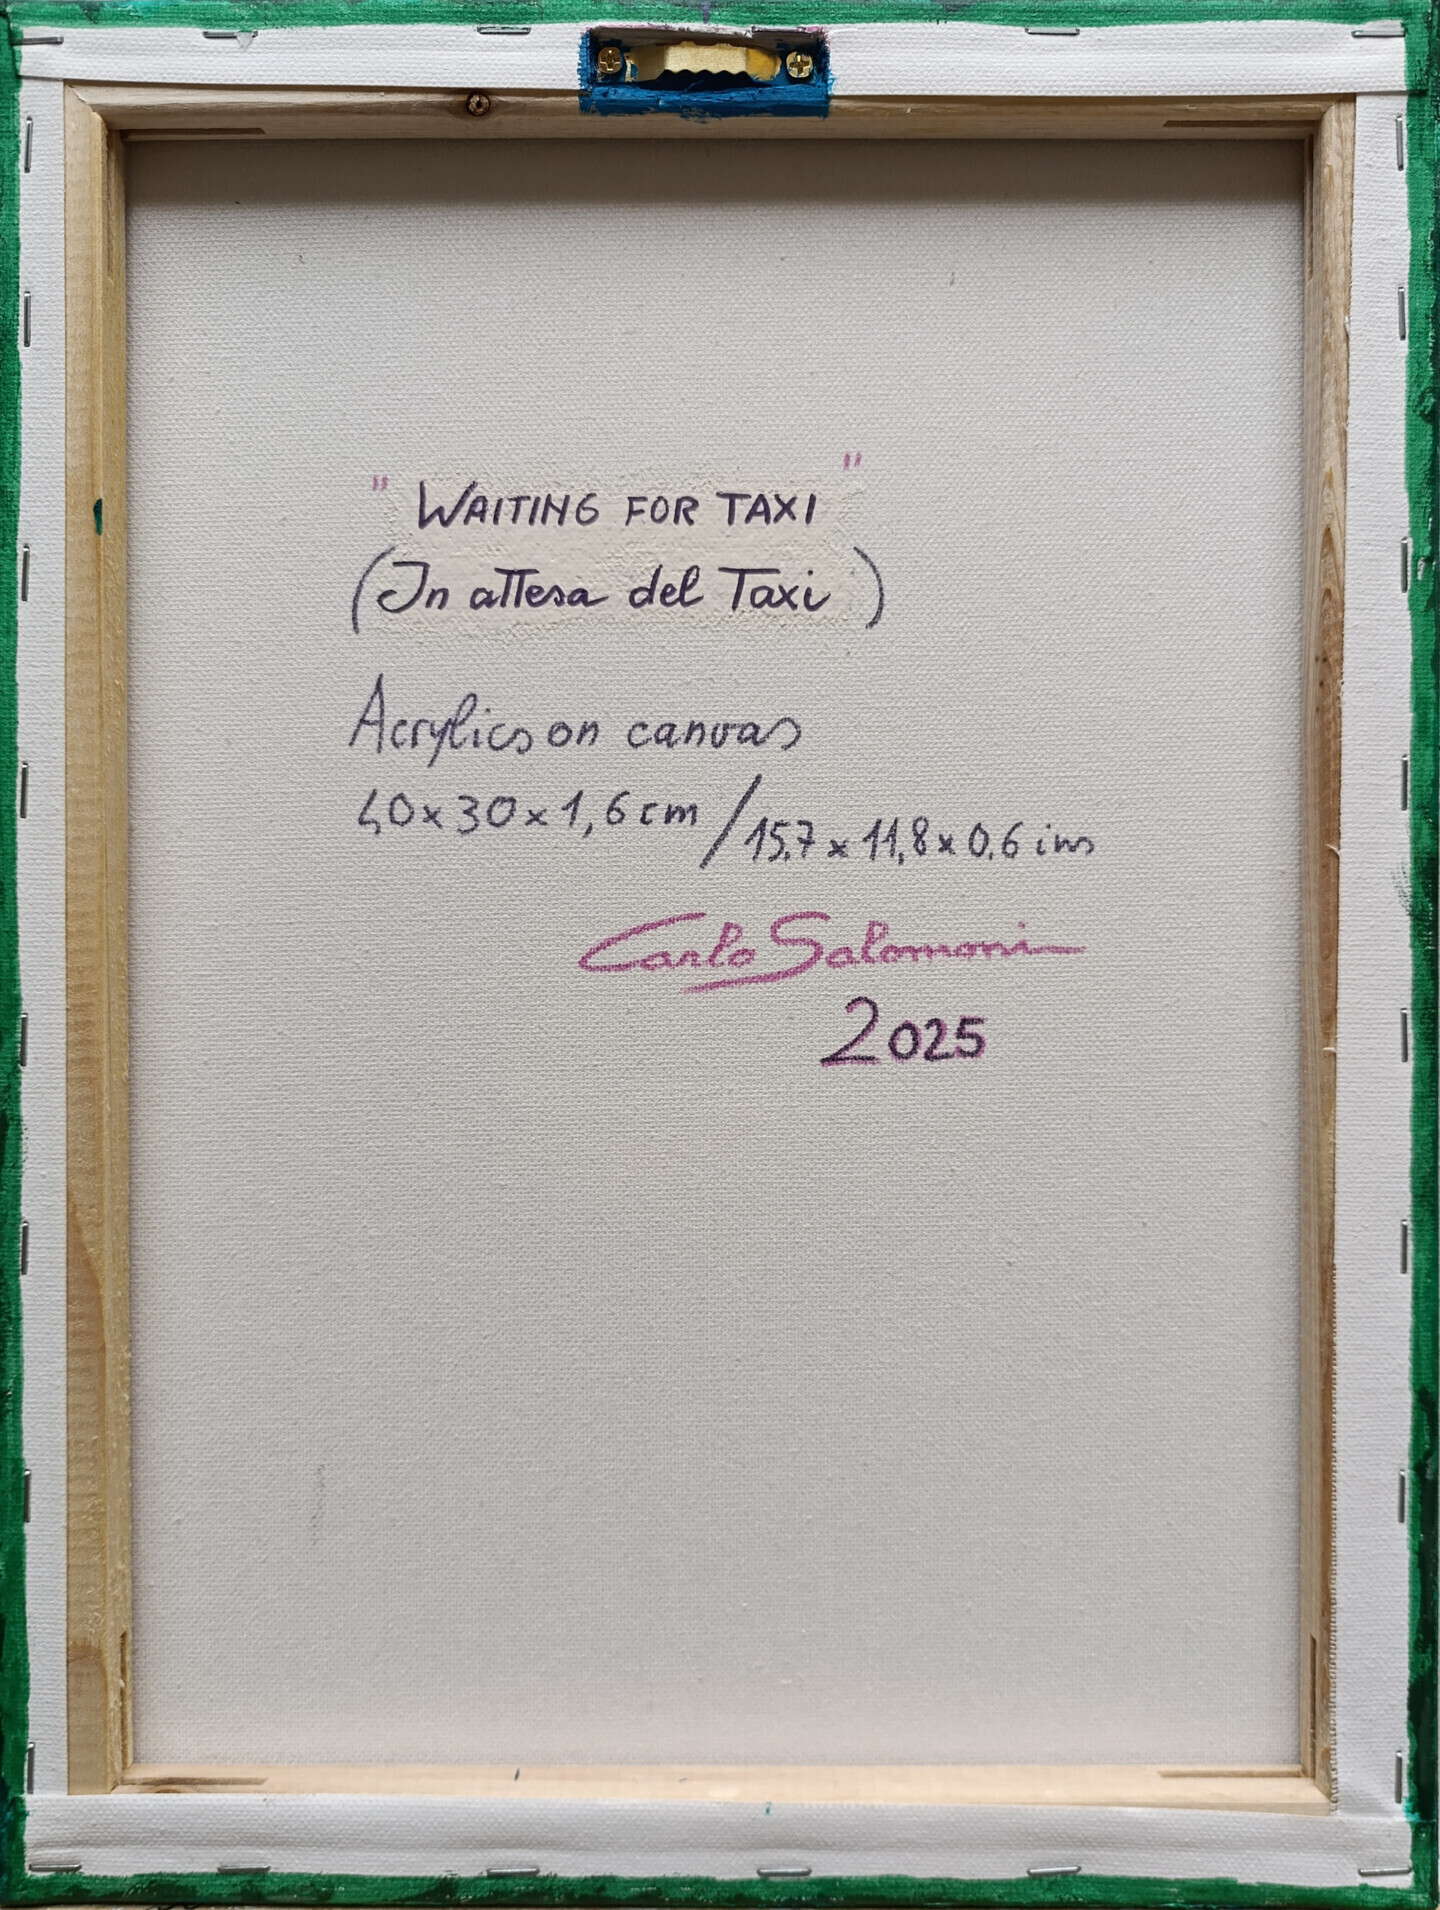 "WAITING FOR TAXI"
(In attesa del Taxi)
Acrylics on canvas
40x30x1,6 cm / 15,7 x 11,8 x 0,6 ins
Carlo Salomoni
2025